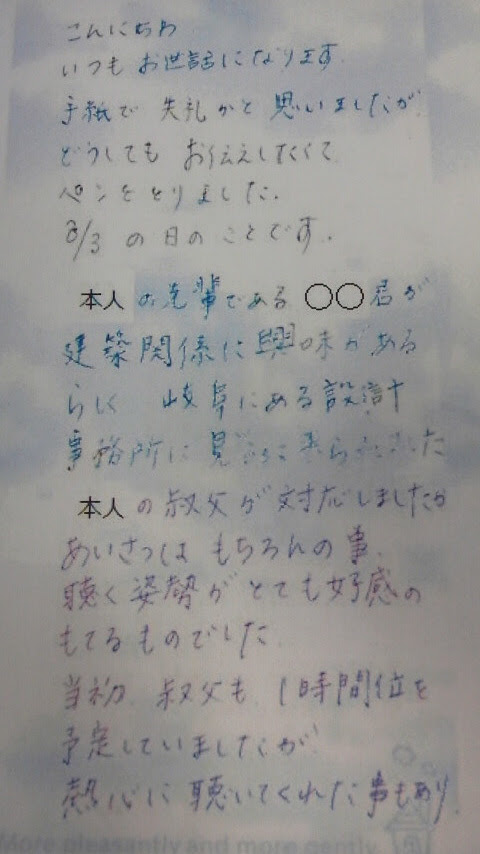 こんにちわ
いつも お世話になります.
手紙で 失礼かと 思いましたが
どうしても お伝えしたくて
ペンをとりました.
8/3 の日のことです.
本人 の先輩である ○○君が
建築関係に興味がある
らしく 岐阜にある設計
事務所に 見学に来られました
本人 の叔父が対応しましたが
あいさつは もちろんの事.
聴く姿勢が とても好感の
もてるものでした.
当初 叔父も 1時間位を
予定していましたが
熱心に 聴いてくれた事もあり
More pleasantly and more gently.